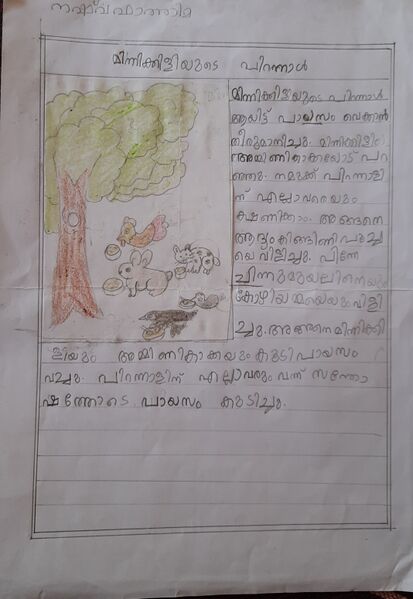 നഷ്വ ഫാത്തിമ
മിന്നിക്കിളിയുടെ പിറന്നാൾ
മിന്നിക്കിളിയുടെ പിറന്നാൾ
ആയിട്ട് പായസം വെക്കാൻ
തീരുമാനിച്ചു. മിന്നിക്കിളി
അമ്മിണികാക്കയോട് പറ
ഞ്ഞു. നമുക്ക് പിറന്നാളി
ന് എല്ലാവരെയും
ക്ഷണിക്കാം. അങ്ങനെ
ആദ്യം കിങ്ങിണിപൂച്ച
യെ വിളിച്ചു. പിന്നേ
ചിന്നുമുയലിനെയും
കോഴിയമ്മയെയും വിളി
ച്ചു. അങ്ങനെ മിന്നിക്കി
ളിയും അമ്മിണികാക്കയും കൂടി പായസം
വച്ചു. പിറന്നാളിന് എല്ലാവരും വന്ന് സന്തോ
ഷത്തോടെ പായസം കുടിച്ചു.